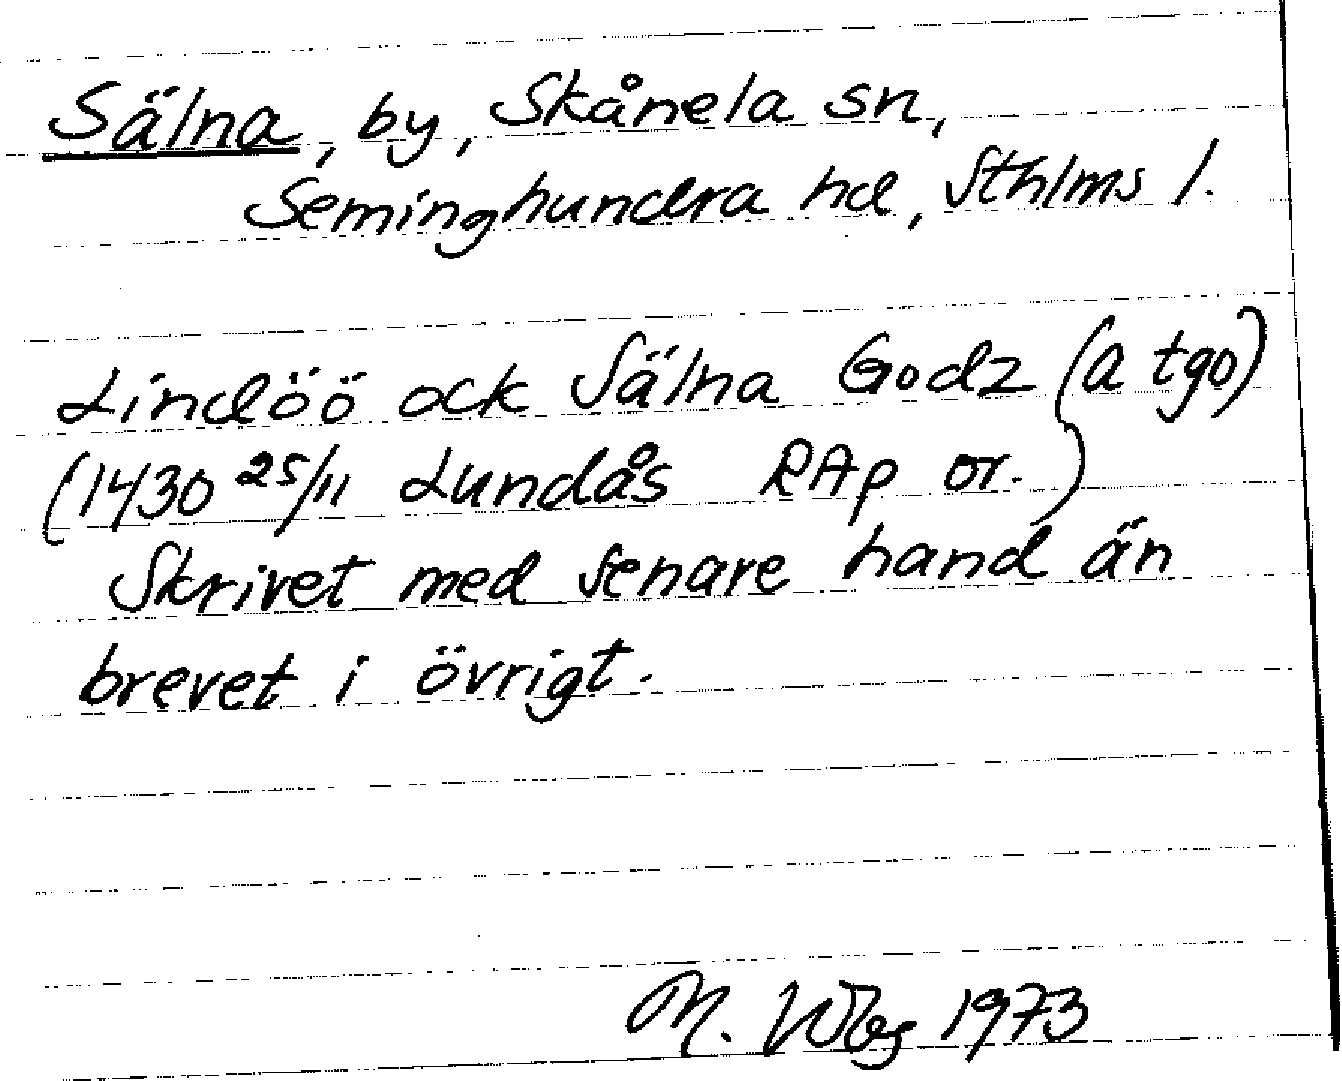 Sälna, by, Skånela sn,
Seminghundra hd, Sthlms l.
Lindöö ock Sälna Godz (a tgo)
(1430 25/11 Lundås RAp or.)
Skrivet med senare hand än
brevet i övrigt.
M. Wbg 1973